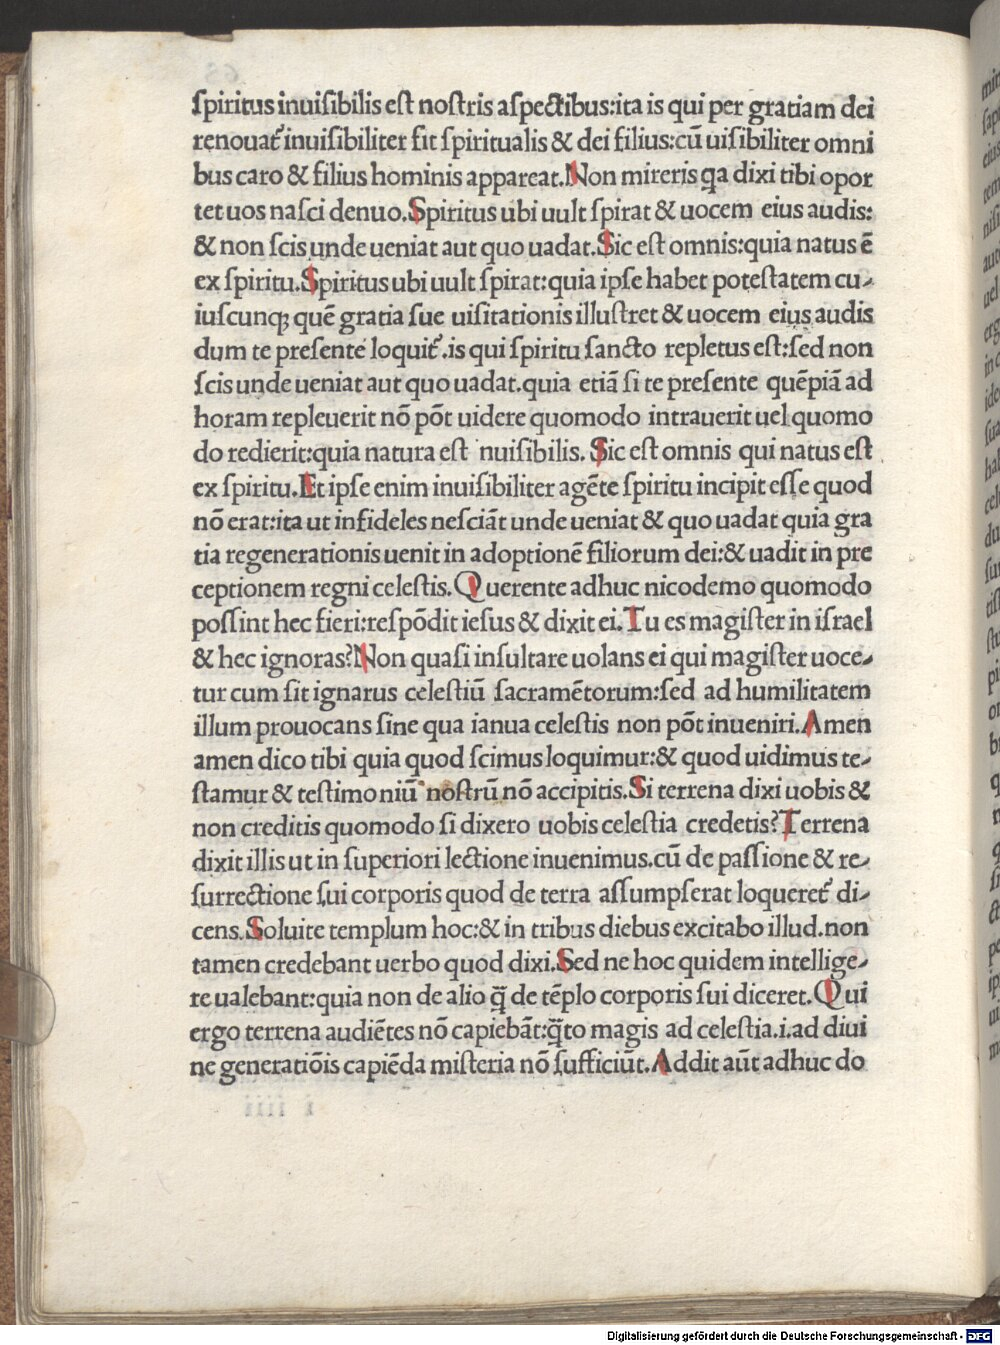 ſpiritus inuiſibilis eſt noſtris aſpectibus:ita is qui per gratiam dei
renouat᷑ inuiſibiliter fit ſpiritualis & dei filius:cū uiſibiliter omni
bus caro & filius hominis appareat.Non mireris qa dixi tibi opor
tet uos naſci denuo.Spiritus ubi uult ſpirat & uocem eius audis:
& non ſcis unde ueniat aut quo uadat.Sic eſt omnis:quia natus ē
ex ſpiritu.Spiritus ubi uult ſpirat:quia ipſe habet poteſtatem cu-
iuſcunqꝫ quē gratia ſue uiſitationis illuſtret & uocem eius audis
dum te preſente loquit᷑.is qui ſpiritu ſancto repletus eſt:ſed non
ſcis unde ueniat aut quo uadat.quia etiā ſi te preſente quēpiā ad
horam repleuerit nō pōt uidere quomodo intrauerit uel quomo
do redierit:quia natura eſt nuiſibilis. Sic eſt omnis qui natus eſt
ex ſpiritu.Et ipſe enim inuiſibiliter agēte ſpiritu incipit eſſe quod
nō erat:ita ut infideles neſciāt unde ueniat & quo uadat quia gra
tia regenerationis uenit in adoptionē filiorum dei:& uadit in pre
ceptionem regni celeſtis.Querente adhuc nicodemo quomodo
poſſint hec fieri:reſpōdit ieſus & dixit ei.Tu es magiſter in iſrael
& hec ignoras?Non quaſi inſultare uolans ei qui magiſter uoce-
tur cum ſit ignarus celeſtiū ſacramētorum:ſed ad humilitatem
illum prouocans ſine qua ianua celeſtis non pōt inueniri.Amen
amen dico tibi quia quod ſcimus loquimur:& quod uidimus te-
ſtamur & teſtimoniū noſtrū nō accipitis.Si terrena dixi uobis &
non creditis quomodo ſi dixero uobis celeſtia credetis?Terrena
dixit illis ut in ſuperiori lectione inuenimus.cū de paſſione & re-
ſurrectione ſui corporis quod de terra aſſumpſerat loqueret᷑ di-
cens.Soluite templum hoc:& in tribus diebus excitabo illud.non
tamen credebant uerbo quod dixi.Sed ne hoc quidem intellige-
re ualebant:quia non de alio q̄̃ de tēplo corporis ſui diceret.Qui
ergo terrena audiētes nō capiebāt:q̄̃to magis ad celeſtia.i.ad diui
ne generatiōis capiēda miſteria nō ſufficiūt.Addit aūt adhuc do
Digitalisierung gefördert durch die Deutsche Forschungsgemeinschaft - DFG